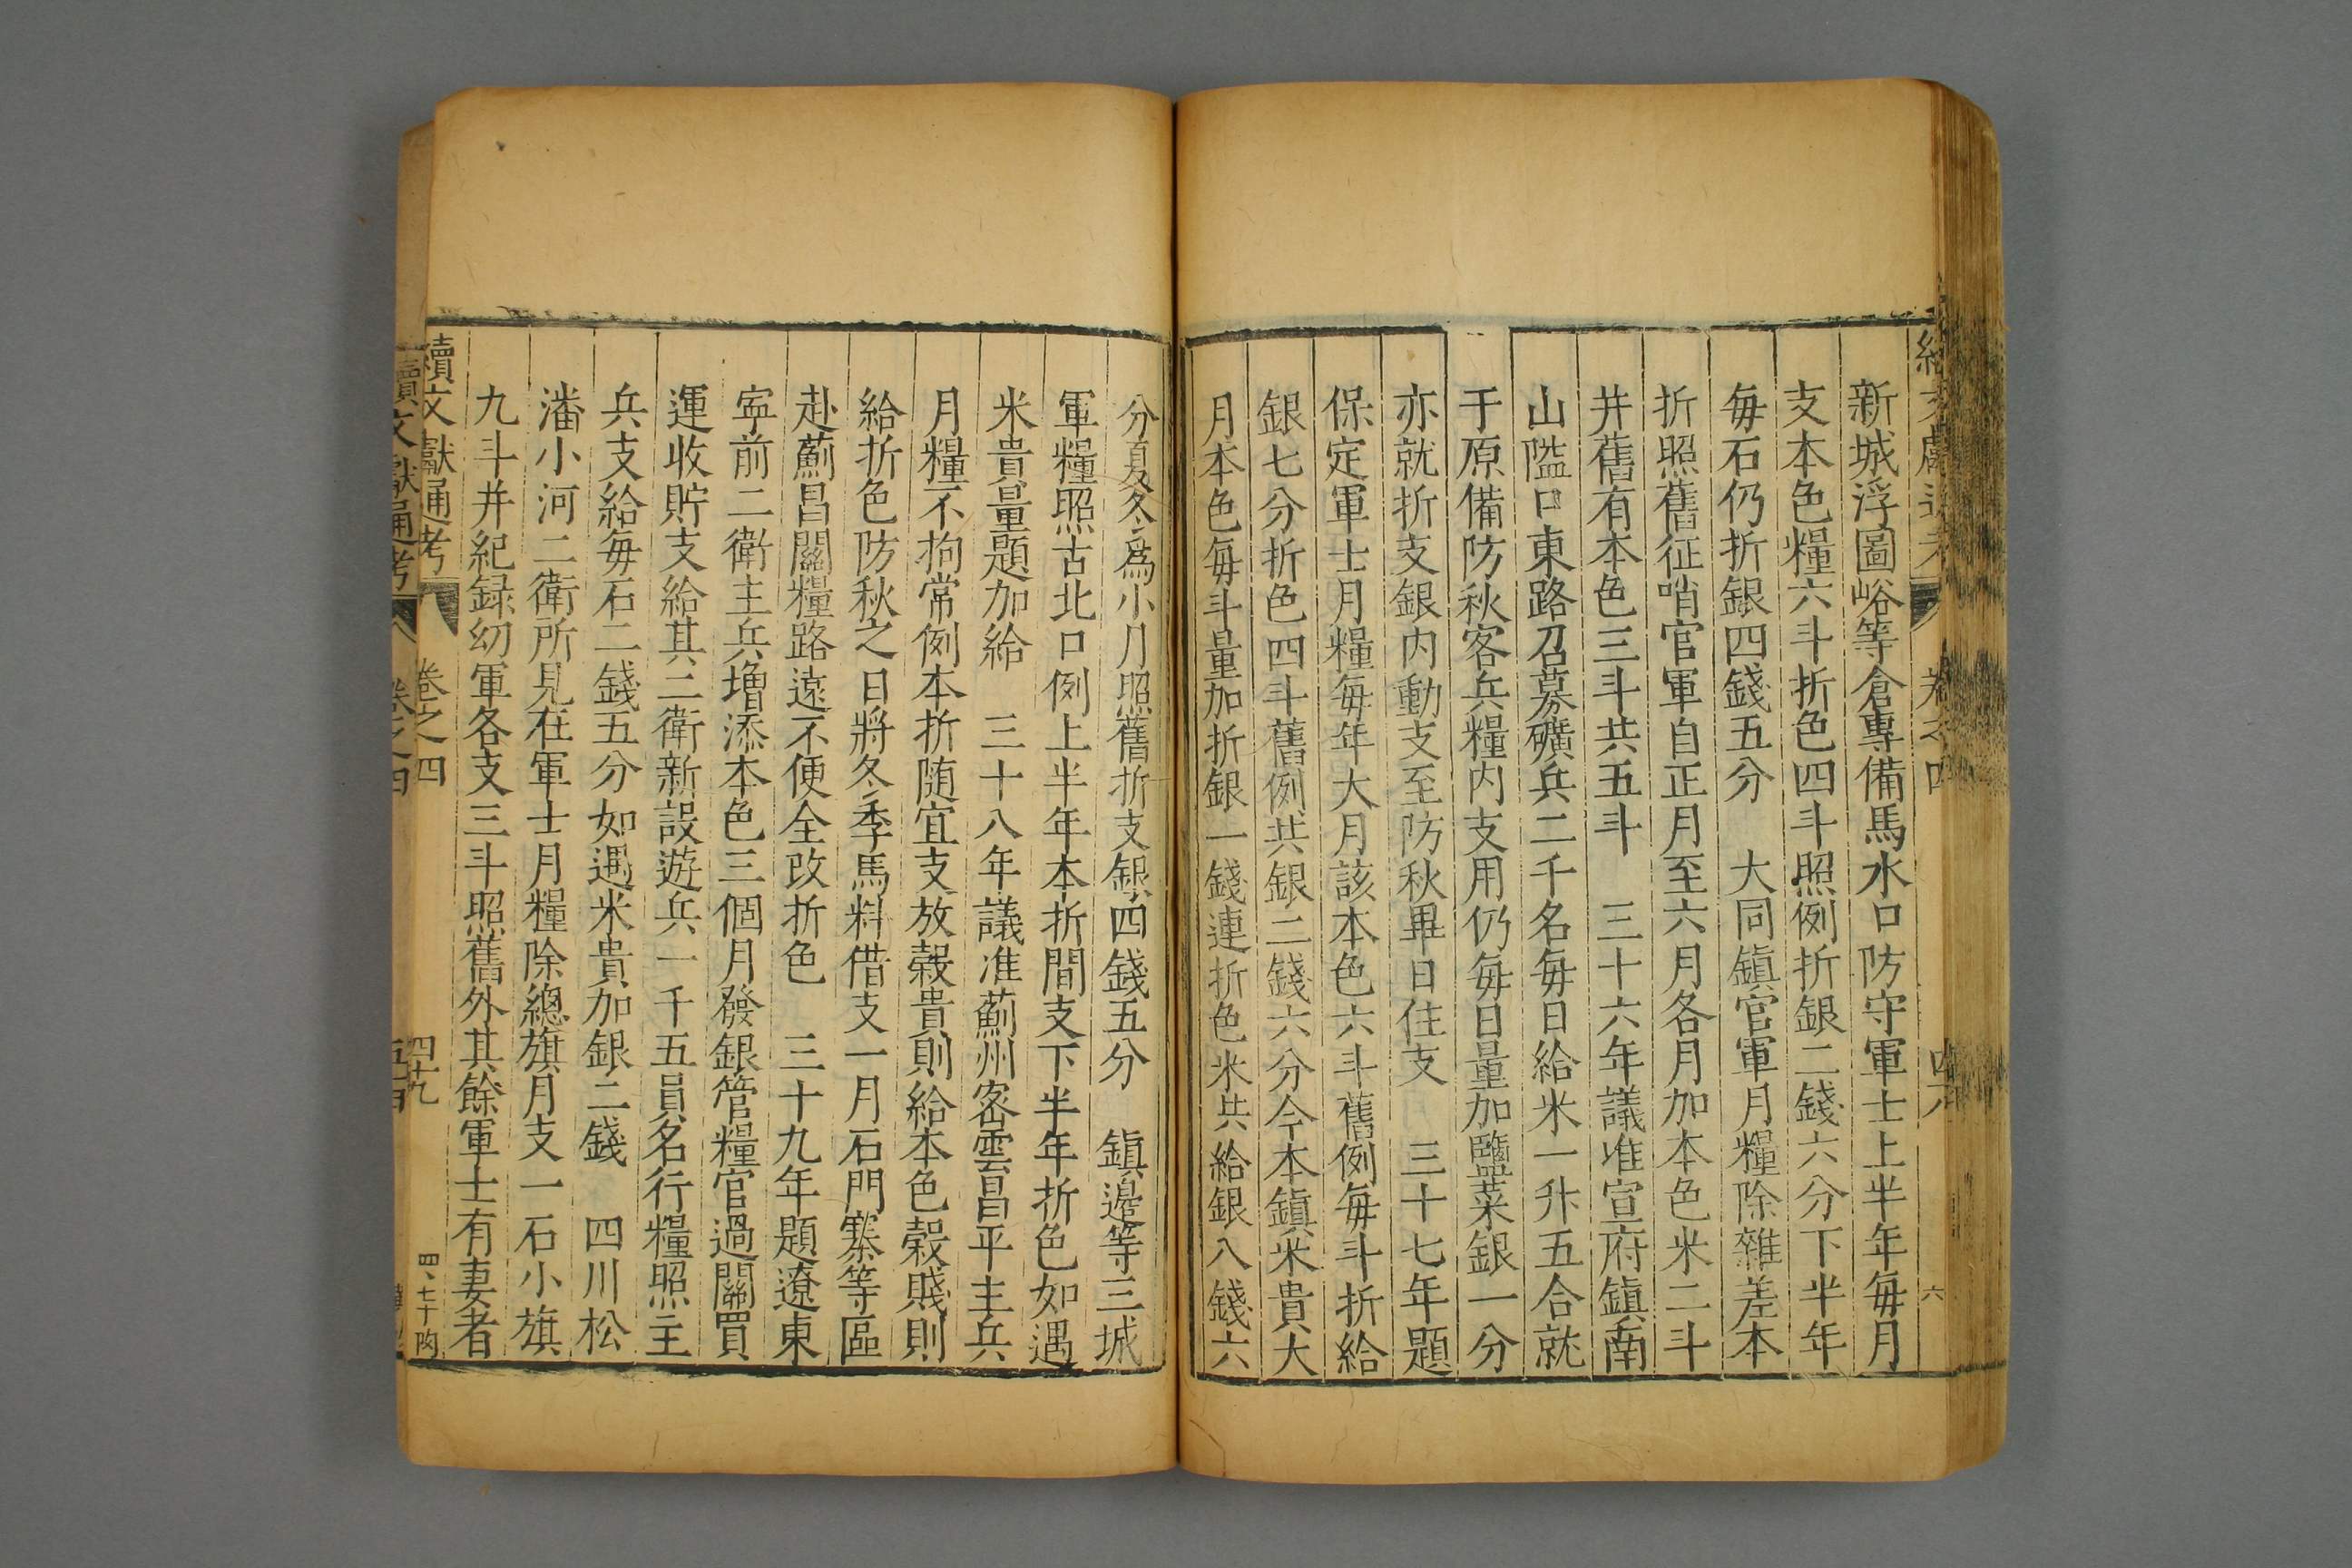 新城浮圖峪等倉專備馬水口防守軍士上半年每月
支本色糧六斗折色四斗照例折銀二錢六分下半年
每石仍折銀四錢五分　大同鎮官軍月糧除雜差本
折照舊征哨官軍自正月至六月各月加本色米二斗
并舊有本色三斗共五斗　三十六年議准宣府鎮南
山隘口東路召募礦兵二千名每日給米一升五合就
于原備防秋客兵糧内支用仍每日量加鹽菜銀一分
亦就折支銀内動支至防秋畢日住支　三十七年題
保定軍士月糧每年大月該本色六斗舊例每斗折給
銀七分折色四斗舊例共銀二錢六分今本鎮米貴大
月本色每斗量加折銀一錢連折色米共給銀八錢六
分夏冬爲小月照舊折支銀四錢五分　鎮邉等三城
軍糧照古北口例上半年本折間支下半年折色如遇
米貴量題加給　三十八年議准薊州密雲昌平主兵
月糧不拘常例本折随宜支放榖貴則給本色榖賤則
給折色防秋之日將冬季馬料借支一月石門寨等區
赴薊昌關糧路遠不便全改折色　三十九年題遼東
寧前二衛主兵增添本色三個月發銀管糧官過關買
運收貯支給其二衛新設遊兵一千五員名行糧照主
兵支給每石二錢五分如遇米貴加銀二錢　四川松
潘小河二衛所見在軍士月糧除總旗月支一石小旗
九斗并紀録幼軍各支三斗照舊外其餘軍士有妻者
續文獻通考　卷之四　四十九
續文獻通考　卷之四